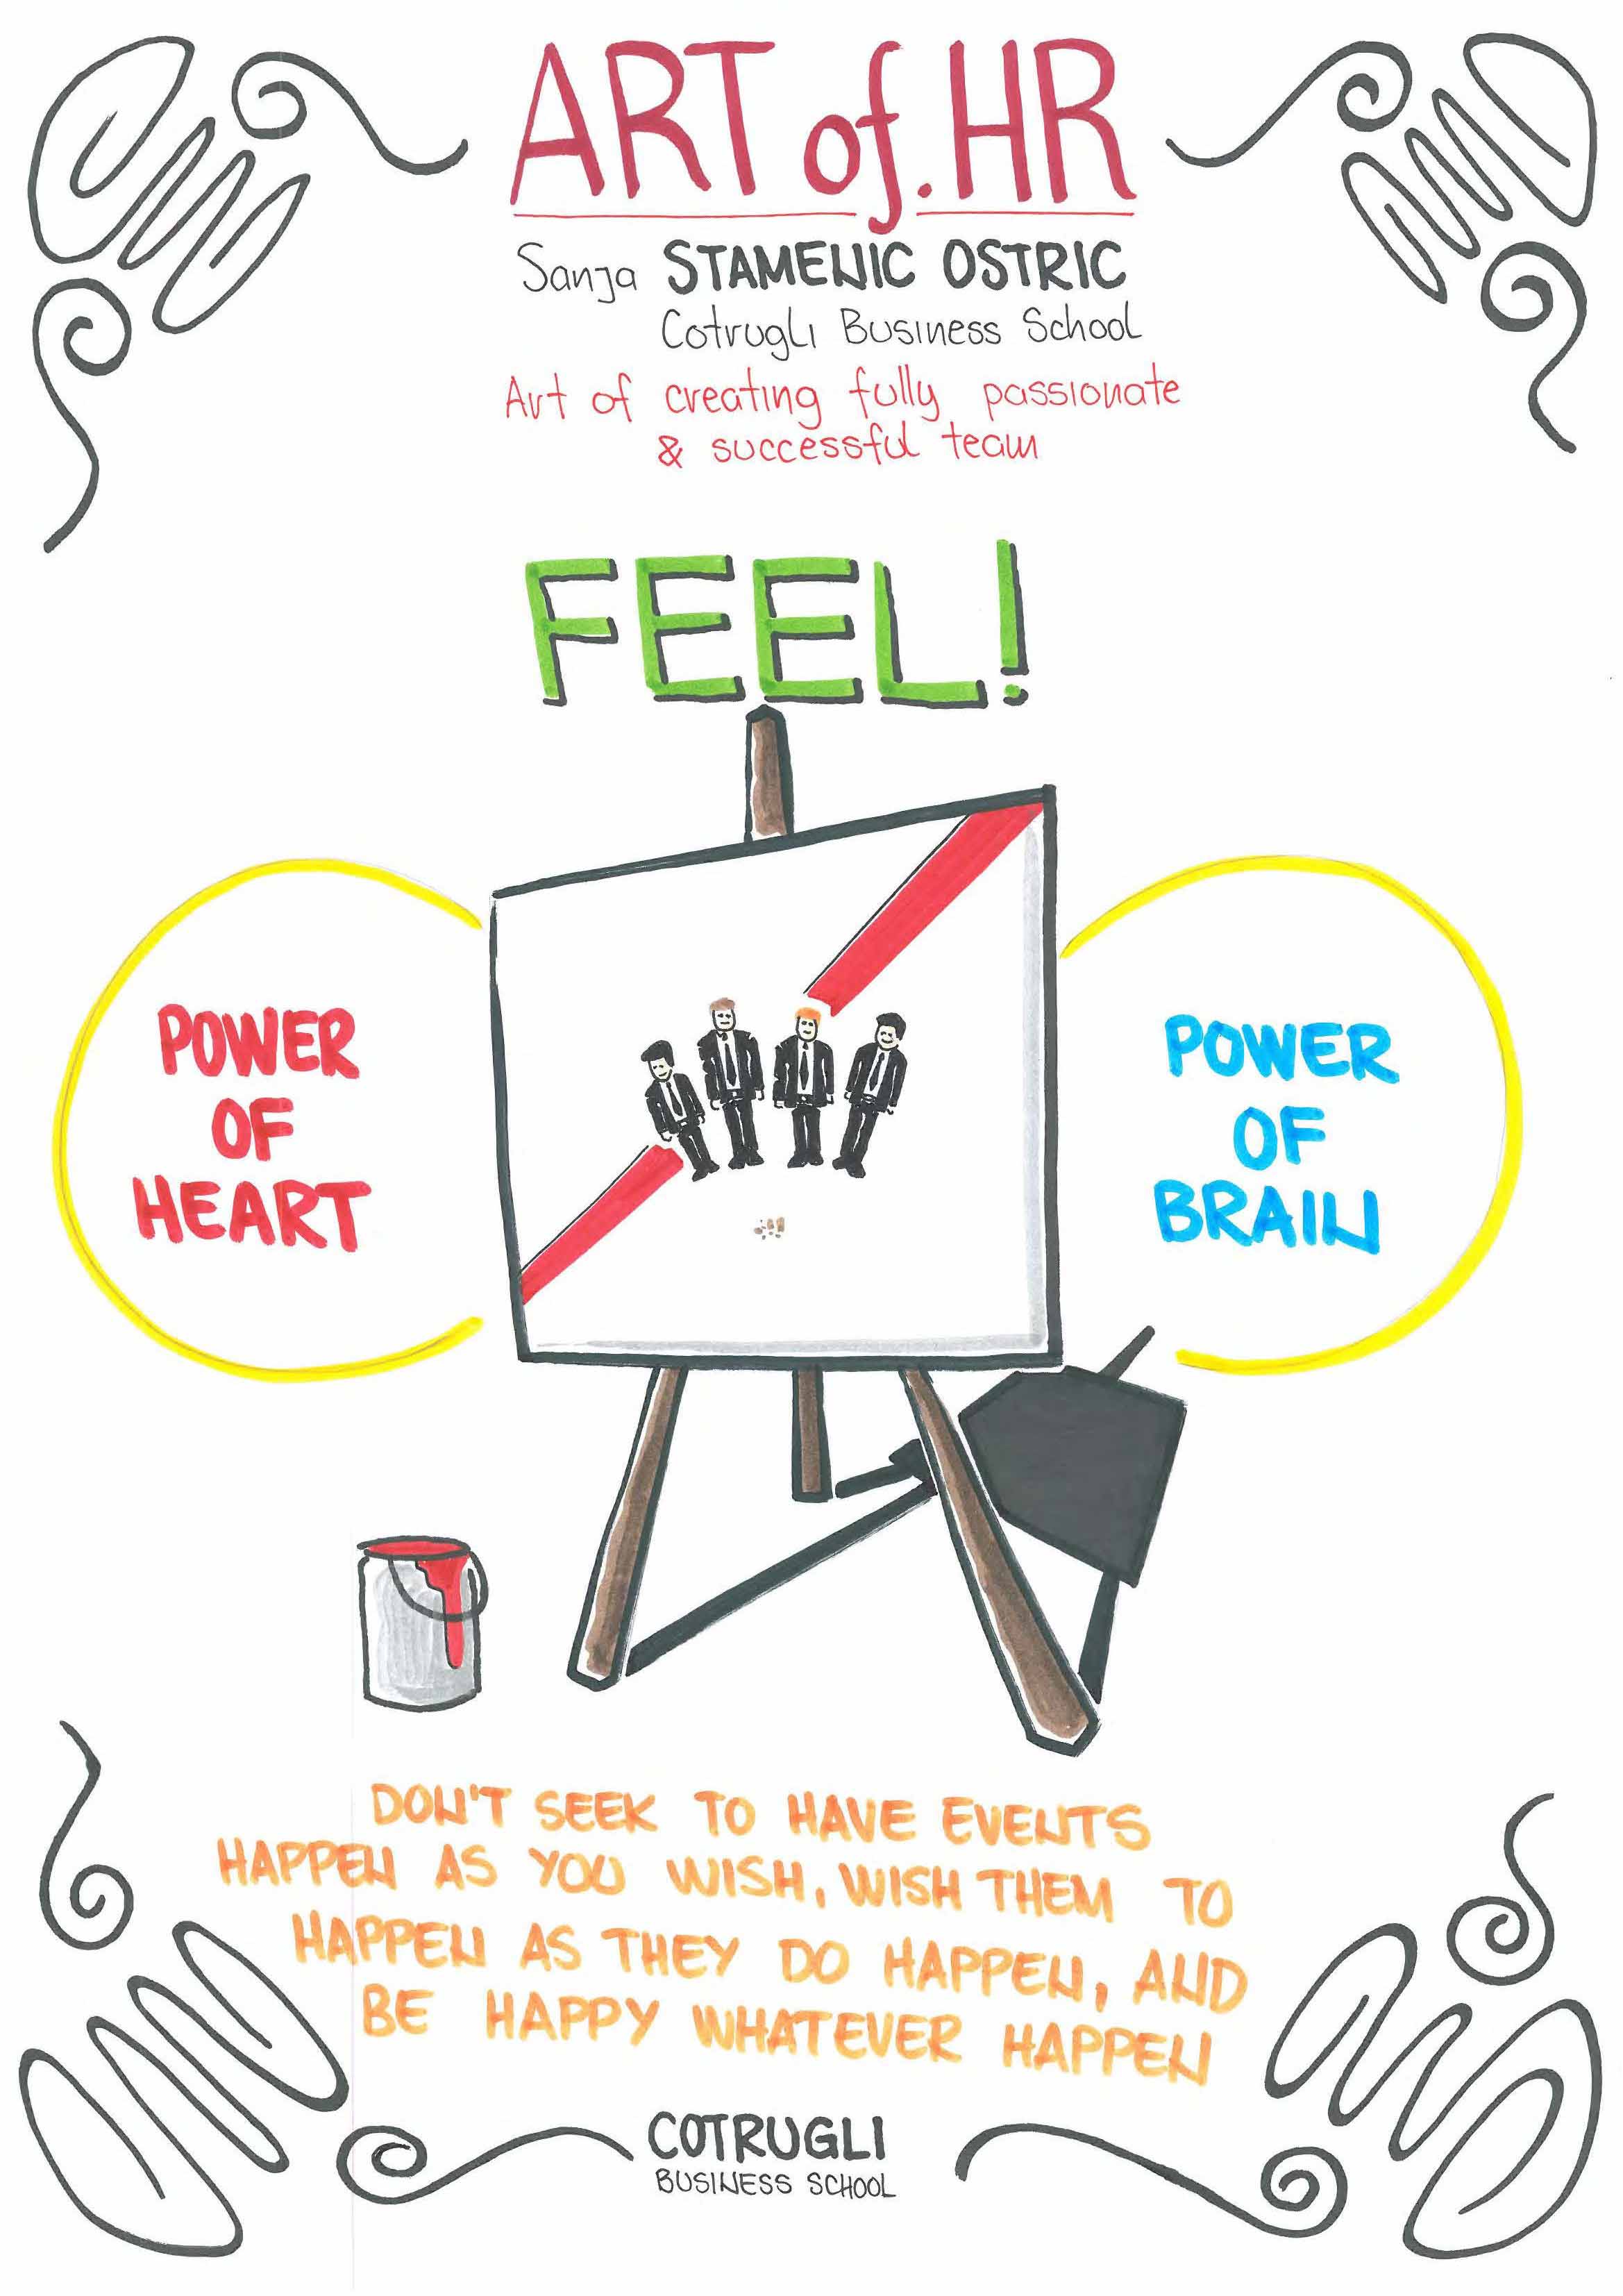 ART of.HR
Sanja STAMENIC OSTRIC
Cotrugli Business School
Art of creating fully passionate
& successful team
FEEL!
POWER
OF
HEART
POWER
OF
BRAIN
DON'T SEEK TO HAVE EVENTS
HAPPEN AS YOU WISH, WISH THEM TO
HAPPEN AS THEY DO HAPPEN, AND
BE HAPPY WHATEVER HAPPEN
COTRUGLI
BUSINESS SCHOOL